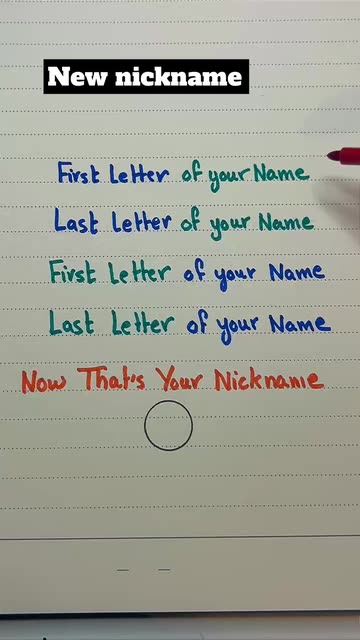 New nickname
First Letter of your Name
Last Letter of your Name
First Letter of your Name
Last Letter of your Name
Now That's Your Nickname